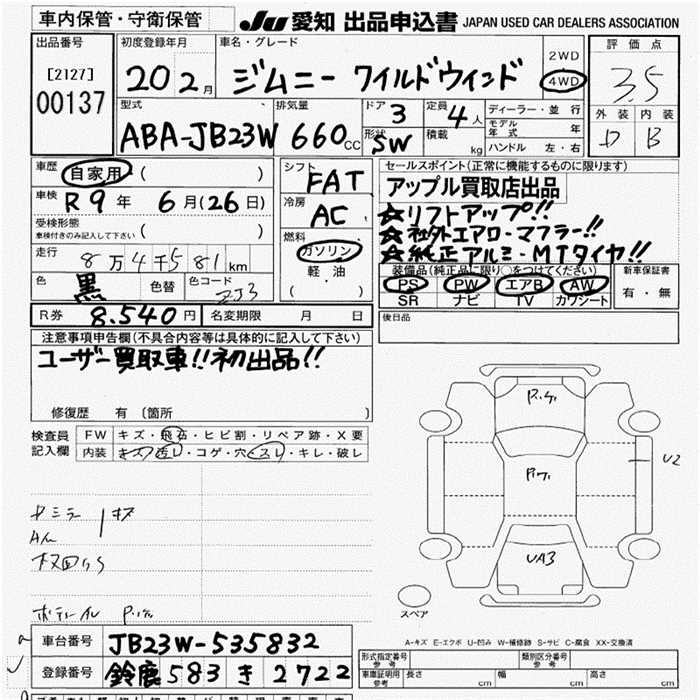 車内保管・守衛保管 JU 愛知 出品申込書 JAPAN USED CAR DEALERS ASSOCIATION
出品番号 初度登録年月 車名・グレード 評価点
[2127] 20 2月 ジムニー ワイルドウィンド 2WD 3.5
00137 4WD
型式 排気量 ドア 3 定員 4人 ディーラー・並 行 外装 内装
ABA-JB23W 660cc 形状 SW 積載 kg モデル年式 年 D B
ハンドル 左・右
車歴 自家用 ( ) シフト FAT セールスポイント(正常に機能するものに限ります)
車検 R9年 6月(26日) 冷房 AC アップル買取店出品
受検形態 ☆リフトアップ!!
車検付きのみ記入して下さい ( ) 燃料 ☆社外エアロ・マフラー!!
走行 8万4千581km ガソリン ☆純正アルミ・MTタイヤ!!
軽 油 装備品(純正品に限り○をつけてください) 新車保証書
色 黒 色替 色コード ZJ3 ( ) PS PW エアB AW 有・無
SR ナビ TV カワシート
R券 8.540円 名変期限 月 日 後日品
注意事項申告欄(不具合内容等は具体的に記入して下さい)
ユーザー買取車!!初出品!!
修復歴 有 〔箇所 〕
検査員 FW キズ・飛石・ヒビ割・リペア跡・X要
記入欄 内装 キズ・汚レ・コゲ・穴・スレ・キレ・破レ
U2
UA3
スペア
A-キズ E-エクボ U-凹み W-補修跡 S-サビ C-腐食 XX-交換済
車台番号 JB23W-535832 形式指定番号 参考 類別区分番号 参考
登録番号 鈴鹿583き2722 車庫証明用 参考 長さ cm 幅 cm 高さ cm